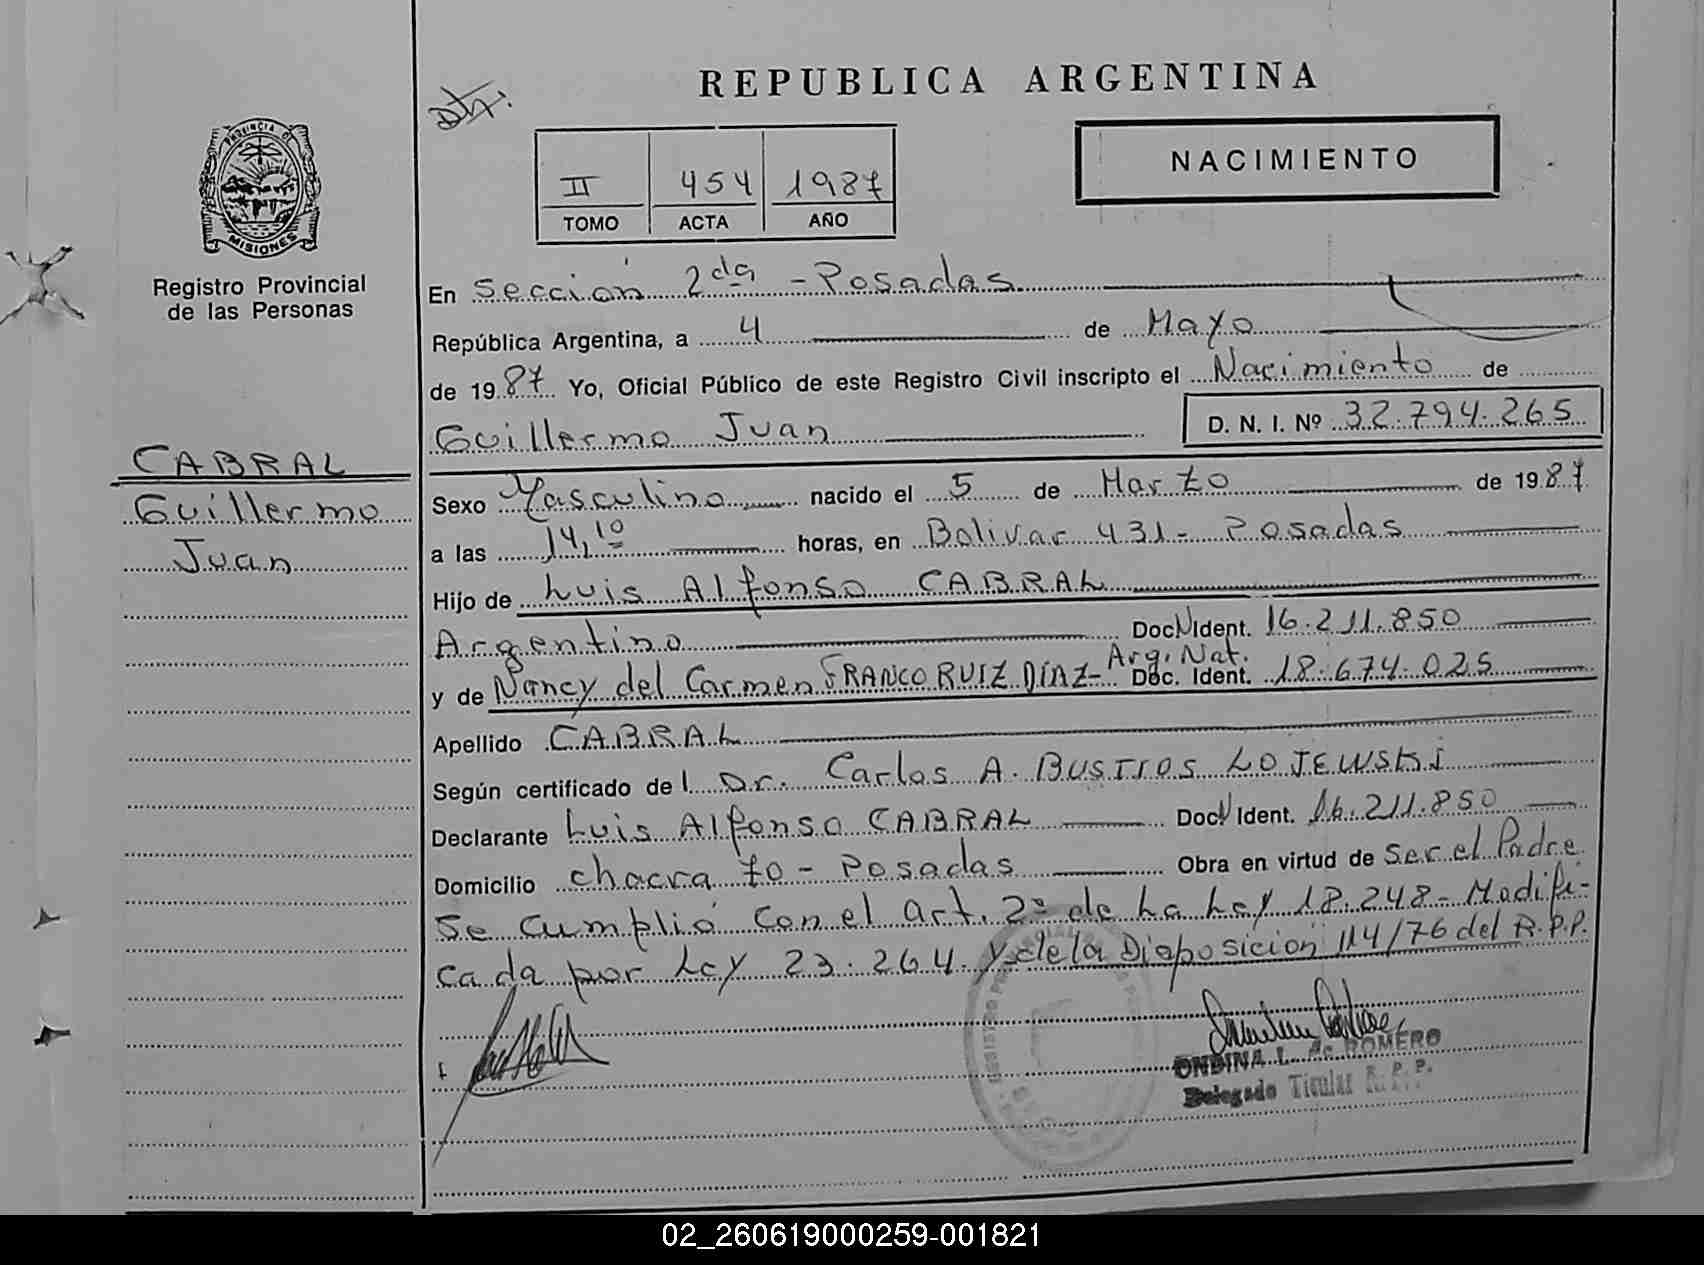 REPUBLICA ARGENTINA
PROVINCIA D
MISIONES
Registro Provincial
de las Personas
II 454 1987
TOMO ACTA AÑO
NACIMIENTO
En Sección 2da - Posadas
República Argentina, a 4 de Mayo
de 1987 Yo, Oficial Público de este Registro Civil inscripto el Nacimiento de
Guillermo Juan D. N. I. Nº 32.794.265
CABRAL
Guillermo
Juan
Sexo Masculino nacido el 5 de Marzo de 1987
a las 14,10 horas, en Bolivar 431 - Posadas
Hijo de Luis Alfonso CABRAL
Argentino Doc N Ident. 16.211.850
Arg. Nat.
y de Nancy del Carmen FRANCO RUIZ DÍAZ - Doc. Ident. 18.674.025
Apellido CABRAL
Según certificado del Dr. Carlos A. BUSTOS LOJEWSKI
Declarante Luis Alfonso CABRAL Doc N Ident. 16.211.850
Domicilio chacra 70 - Posadas Obra en virtud de ser el Padre
Se cumplió con el art. 2º de la Ley 18.248 - Modifi-
cada por Ley 23.264 y de la Disposicion 114/76 del R.P.P.
ONDINA L. de ROMERO
Delegado Titular R. P. P.
02_260619000259-001821